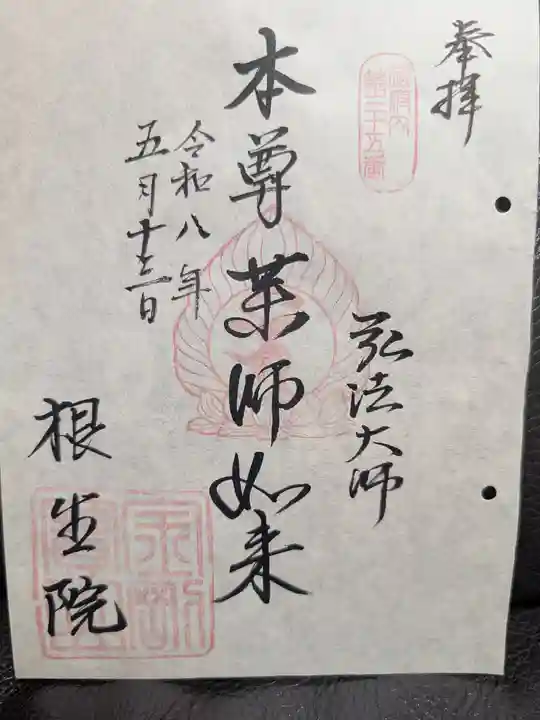 奉拝
御府内
第三十五番
弘法大師
本尊薬師如来
令和八年
五月十三日
根生院